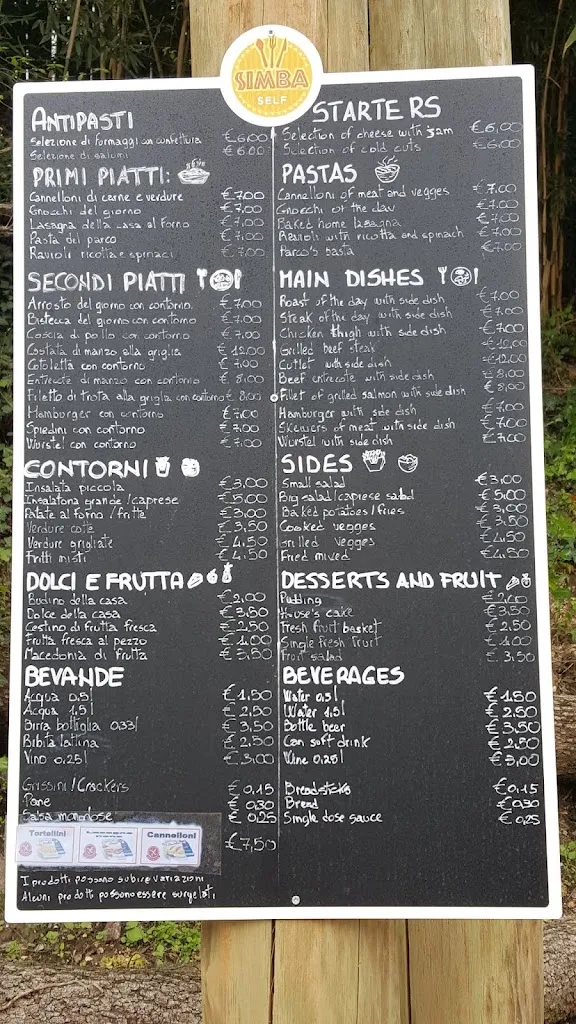 SIMBA
SELF
ANTIPASTI
Selezione di formaggi con confettura €6,00
Selezione di salumi €6.00
PRIMI PIATTI:
Cannelloni di carne e verdure €7,00
Gnocchi del giorno €7,00
Lasagna della casa al forno €7,00
Pasta del parco €7,00
Ravioli ricotta e spinaci €7,00
SECONDI PIATTI
Arrosto del giorno con contorno €7,00
Bistecca del giorno con contorno €7,00
Coscia di pollo con contorno €7,00
Costata di manzo alla griglia €12,00
Cotoletta con contorno €7,00
Entrecote di manzo con contorno €8,00
Filetto di trota alla griglia con contorno €8,00
Hamburger con contorno €7,00
Spiedini con contorno €7,00
Würstel con contorno €7,00
CONTORNI
Insalata piccola €3,00
Insalatona grande/caprese €5,00
Patate al forno/fritte €3,00
Verdure cotte €3,50
Verdure grigliate €4,50
Fritti misti €4,50
DOLCI E FRUTTA
Budino della casa €2,00
Dolce della casa €3,50
Cestino di frutta fresca €2,50
Frutta fresca al pezzo €1,00
Macedonia di frutta €3,50
BEVANDE
Acqua 0,5l €1,50
Acqua 1,5l €2,50
Birra bottiglia 0,33l €3,50
Bibita lattina €2,50
Vino 0,25l €3,00
Grissini/Crackers €0,15
Pane €0,30
Salsa monodose €0,25
Tortellini
Cannelloni
€7,50
I prodotti possono subire variazioni
Alcuni prodotti possono essere surgelati
STARTERS
Selection of cheese with jam €6,00
Selection of cold cuts €6.00
PASTAS
Cannelloni of meat and vegges €7.00
Gnocchi of the day €7.00
Baked home lasagna €7.00
Ravioli with ricotta and spinach €7.00
Parco's pasta €7.00
MAIN DISHES
Roast of the day with side dish €7.00
Steak of the day with side dish €7.00
Chicken thigh with side dish €7.00
Grilled beef steak €12,00
Cutlet with side dish €12.00
Beef entrecote with side dish €8,00
Fillet of grilled salmon with side dish €8,00
Hamburger with side dish €7.00
Skewers of meat with side dish €7.00
Würstel with side dish €7.00
SIDES
Small salad €3,00
Big salad/caprese salad €5,00
Baked potatoes/fries €3,00
Cooked vegges €3,50
Grilled vegges €4.50
Fried mixed €4,50
DESSERTS AND FRUIT
Pudding €2,00
House's cake €3,50
Fresh fruit basket €2.50
Single fresh fruit €1.00
Fruit salad €3,50
BEVERAGES
Water 0,5l €1.50
Water 1,5l €2.50
Bottle beer €3,50
Can soft drink €2,50
Wine 0,25l €3,00
Breadsticks €0.15
Bread €0,30
Single dose sauce €0,25